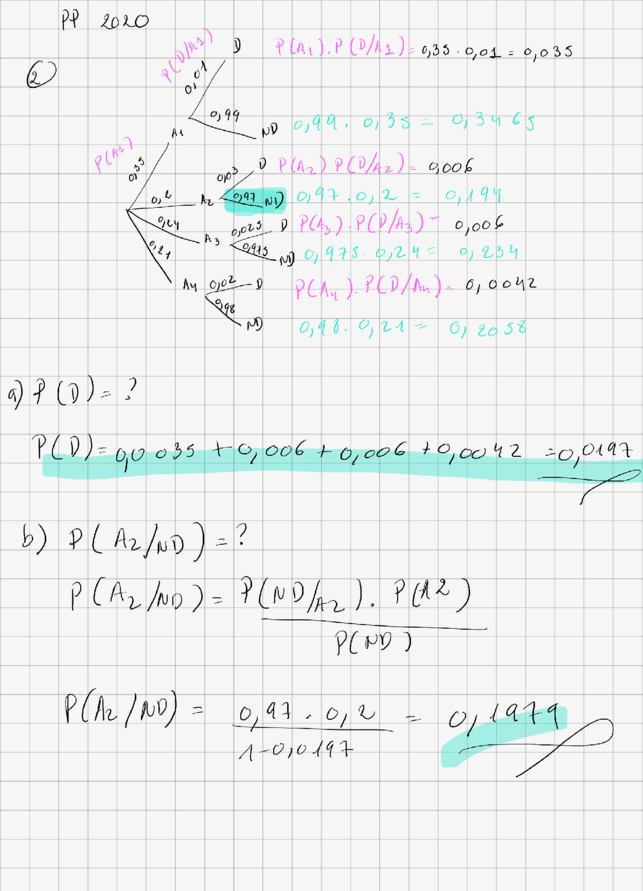 PP 2020
2
P(D/A1)
0,01
D
P(A1).P(D/A1)=0,35.0,01=0,035
0,99
ND
0,99.0,35=0,3465
P(A1)
0,35
A1
0,03
D
P(A2).P(D/A2)=0,006
0,2
A2
0,97
ND
0,97.0,2=0,194
0,24
A3
0,025
D
P(A3).P(D/A3)=0,006
0,975
ND
0,975.0,24=0,234
0,21
A4
0,02
D
P(A4).P(D/A4)=0,0042
0,98
ND
0,98.0,21=0,2058
a) P(D)=?
P(D)=0,0035+0,006+0,006+0,0042=0,0197
b) P(A2/ND)=?
P(A2/ND)=P(ND/A2).P(A2)
P(ND)
P(A2/ND)=0,97.0,2=0,1979
1-0,0197